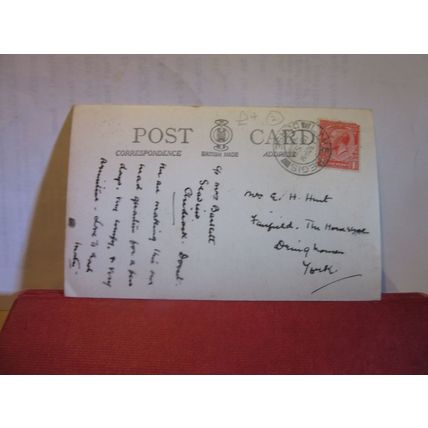 £4 2
POST CARD
CORRESPONDENCE BRITISH MADE ADDRESS
REGIS
c/o Mrs Bartlett
Seaview
Dorset.
We are making this our
head quarters for a few
days. Very & very
Love to and
Mrs E. H. Hunt
Fairfield, The
Dringhouses
York